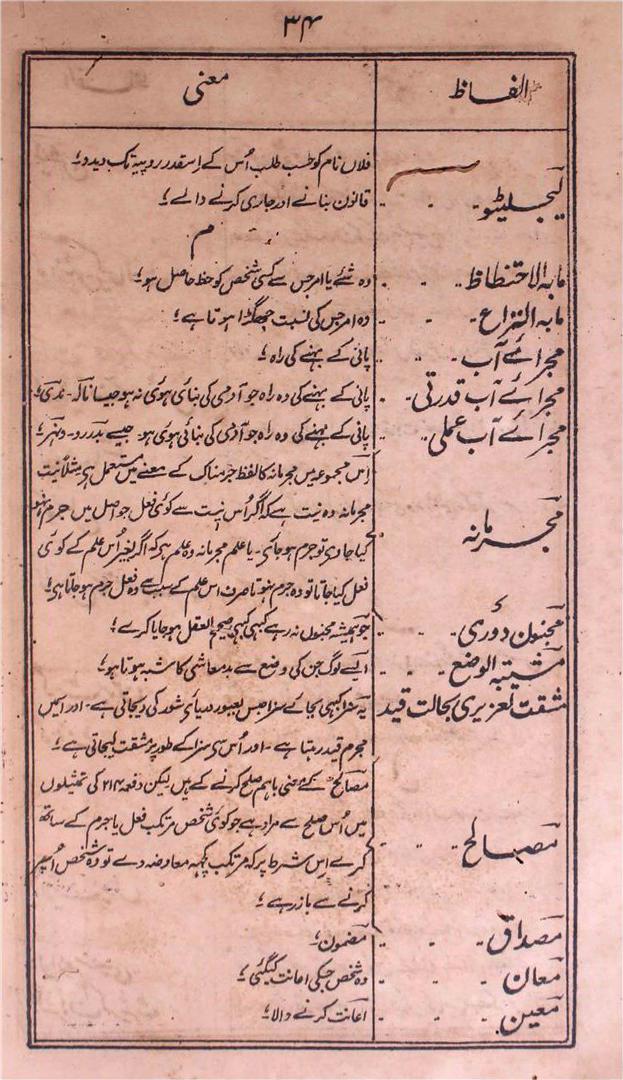 ۳۴
الفاظ معنی
فلاں نام کو حسب طلب اُس کے اسقدر روپیہ تک دیدو؛
لیجسلیٹو - - - قانون بنانے اور جاری کرنے والے؛
م
مابہ الاحتظاظ - - وہ شئے یا امر جس سے کسی شخص کو حظ حاصل ہو؛
مابہ النزاع - - - وہ امر جس کی نسبت جھگڑا ہوتا ہے؛
مجرائے آب - - - پانی کے بہنے کی راہ؛
مجرائے آب قدرتی - - پانی کے بہنے کی وہ راہ جو آدمی کی بنائی ہوئی نہ ہو جیسا نالہ - ندی؛
مجرائے آب عملی - - پانی کے بہنے کی وہ راہ جو آدمی کی بنائی ہوئی ہو جیسے بدررو - و نہر؛
اس مجموعہ میں مجرمانہ کا لفظ جرمناک کے معنے میں مستعمل ہی مثلاً نیت
مجرمانہ وہ نیت ہے کہ اگر اُس نیت سے کوئی فعل جو اصل میں جرم نہو
مجرمانہ
کیا جاوی تو جرم ہو جاے - یا علم مجرمانہ وہ علم ہی کہ اگر بغیر اُس علم کے کوئی
فعل کیا جاتا تو وہ جرم نہوتا صرف اس علم کے سبب سے وہ فعل جرم ہو جاتا ہی؛
مجنون دَوری - - - جو ہمیشہ مجنوں نہ رہے کبھی کبھی صحیح العقل ہو جایا کرے؛
مشتبہ الوضع - - - ایسے لوگ جن کی وضع سے بدمعاشی کا شبہ ہوتا ہو؛
مشقت تعزیری بحالت قید یہ سزا کبھی بجائے سزا حبس بعبور دریاے شور کی دیجاتی ہے - اور اسمیں
مجرم قید رہتا ہے - اور اُس سے سزا کے طور پر مشقت لیجاتی ہے؛
مصالح کے معنی باہم صلح کرنے کے ہیں لیکن دفعہ ۲۱۴ کی تمثیلوں
میں اُس صلح سے مراد ہے جو کوئی شخص مرتکب فعل یا جرم کے ساتھ
مصالح - - -
کرے اِس شرط پر کہ مرتکب کچھ معاوضہ دے تو وہ شخص
کرنے سے باز رہے؛
مصداق - - - مضمون؛
معان - - - وہ شخص جسکی اعانت کیگئی؛
معین - - - اعانت کرنے والا؛